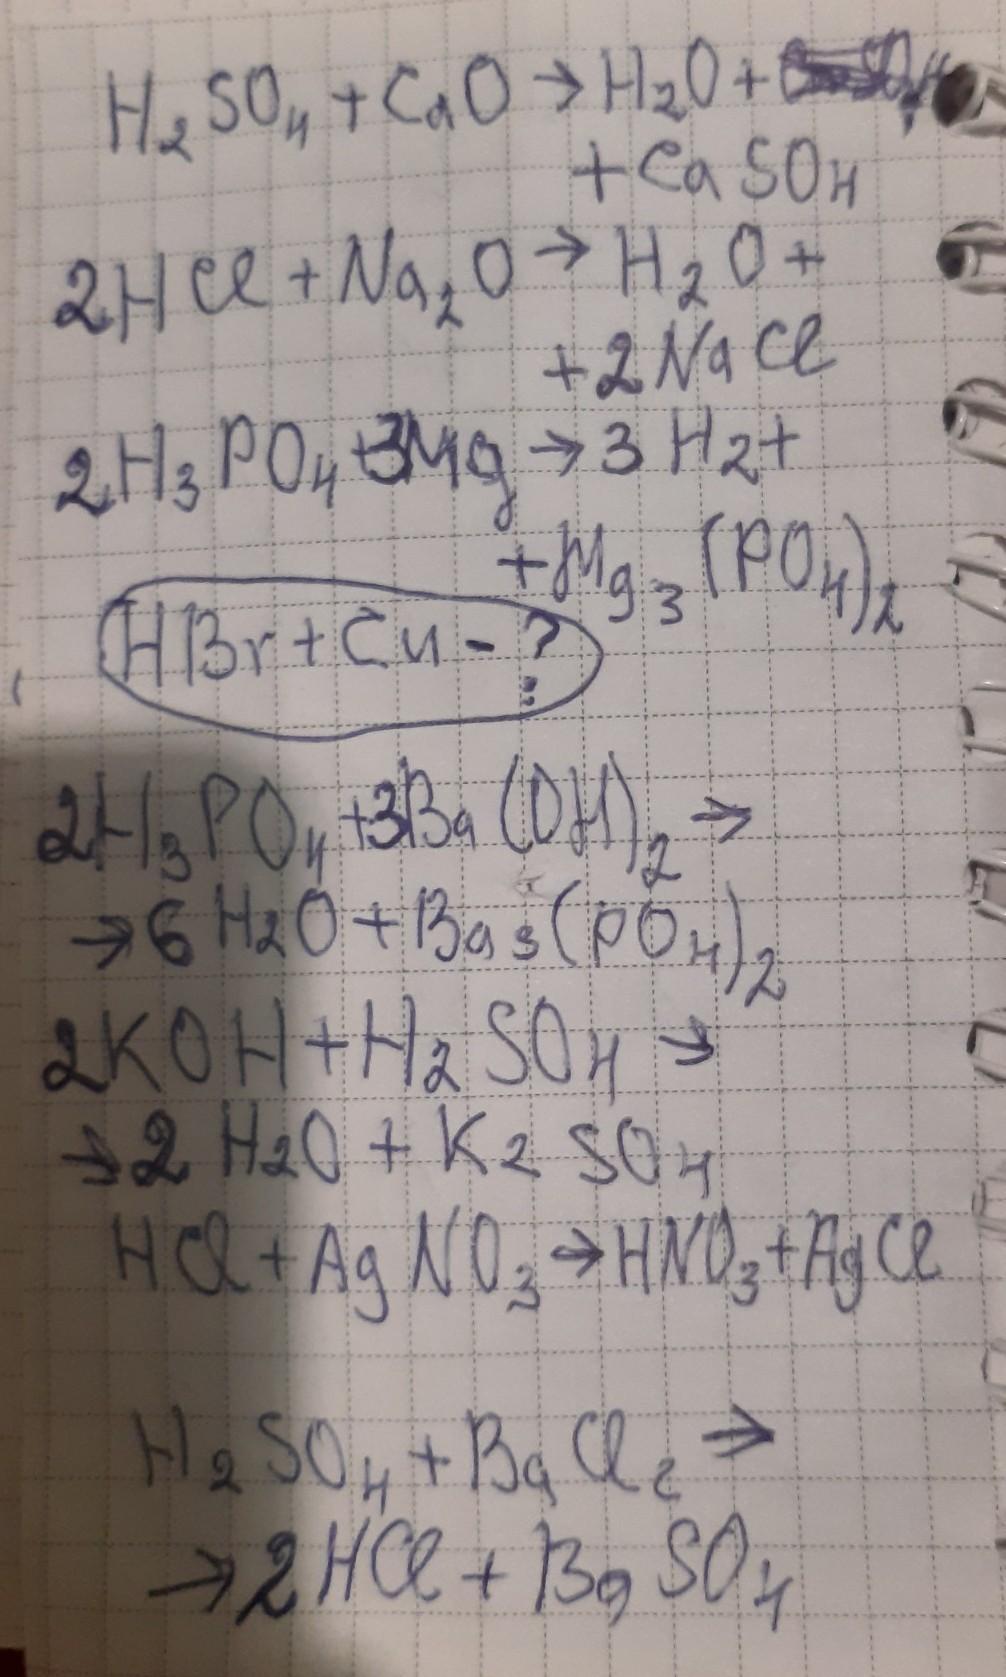 H₂SO₄ + CaO → H₂O +
+ CaSO₄
2HCl + Na₂O → H₂O +
+ 2NaCl
2H₃PO₄ + 3Mg → 3H₂ +
+ Mg₃(PO₄)₂
HBr + Cu - ?
2H₃PO₄ + 3Ba(OH)₂ →
→ 6H₂O + Ba₃(PO₄)₂
2KOH + H₂SO₄ →
→ 2H₂O + K₂SO₄
HCl + AgNO₃ → HNO₃ + AgCl
H₂SO₄ + BaCl₂ →
→ 2HCl + BaSO₄